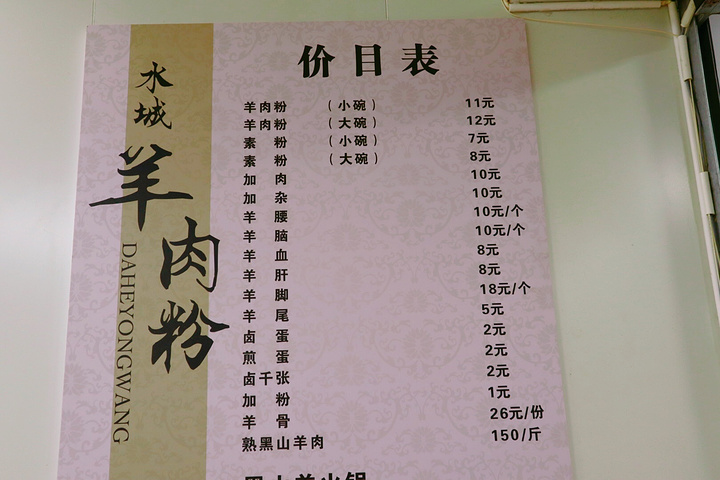 价目表
水城
羊肉粉
DAHEYONGWANG
羊肉粉 （小碗） 11元
羊肉粉 （大碗） 12元
素粉 （小碗） 7元
素粉 （大碗） 8元
加肉 10元
加杂 10元
羊腰 10元/个
羊脑 10元/个
羊血 8元
羊肝 8元
羊脚 18元/个
羊尾 5元
卤蛋 2元
煎蛋 2元
卤千张 2元
加粉 1元
羊骨 26元/份
熟黑山羊肉 150/斤